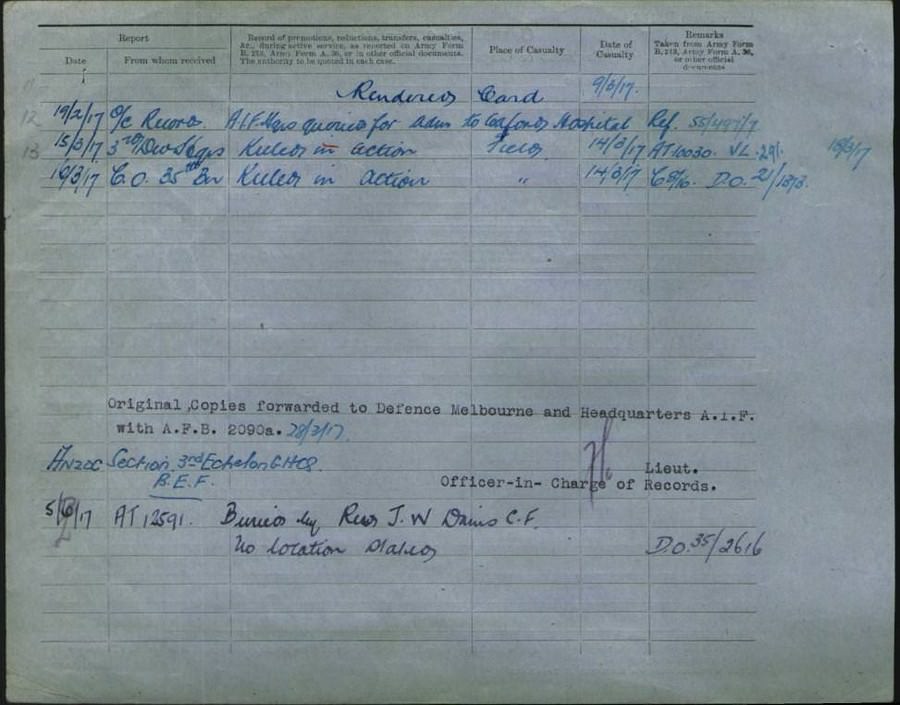 Report
Record of promotions, reductions, transfers, casualties,
&c., during active service, as reported on Army Form
B. 213, Army Form A. 36, or in other official documents.
The authority to be quoted in each case.
Place of Casualty
Date of
Casualty
Remarks
Taken from Army Form
B. 213, Army Form A. 36,
or other official
documents
Date
From whom received
11 Rendered Card 9/3/17.
12 19/2/17 O/C Records A.I.F. Hqrs queries for adm to Hospital Ref. 55/497/7
13 15/3/17 3rd Div Hqrs Killed in action Field 14/3/17 AT10030. VL. 291. 18/3/17
16/3/17 C.O. 35th Bn Killed in action " 14/3/17 D.O. 2/1373.
Original Copies forwarded to Defence Melbourne and Headquarters A.I.F.
with A.F.B. 2090a. 28/3/17.
Anzac Section, 3rd Echelon G.H.Q.
B.E.F.
Lieut.
Officer-in- Charge of Records.
5/6/17 AT12591. Buried by Rev J. W Dains C.F.
No location stated D.O. 35/2616